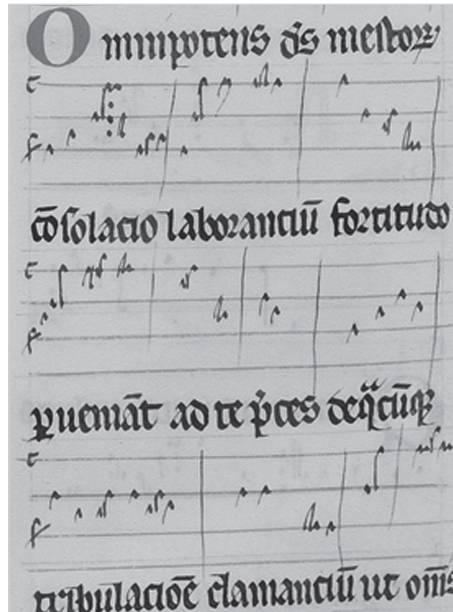 Omnipotens ds̄ mestoꝝ
cōsolacio laboranciū fortitudo
ꝑueniāt ad te p̄ces de qͣcūqꝫ
tribulacōe clamanciū ut om̄s